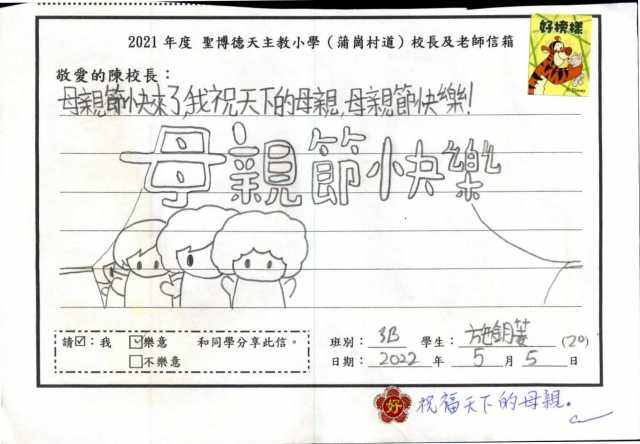 好榜樣
Disney
2021 年度 聖博德天主教小學（蒲崗村道）校長及老師信箱
敬愛的陳校長：
母親節快來了,我祝天下的母親,母親節快樂!
母親節快樂
請☑：我 ☑樂意 和同學分享此信。
□不樂意
班別： 3B 學生： (20)
日期： 2022 年 5 月 5 日
好 祝福天下的母親。